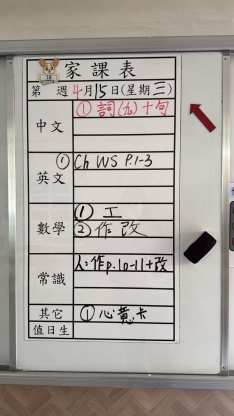 家課表
第 週 4月15日(星期三)
中文 ① 詞(九)十句
英文 ① Ch WS P.1-3
數學 ① 工
② 作改
常識 人:作p.10-11+改
其它 ① 心意卡
值日生